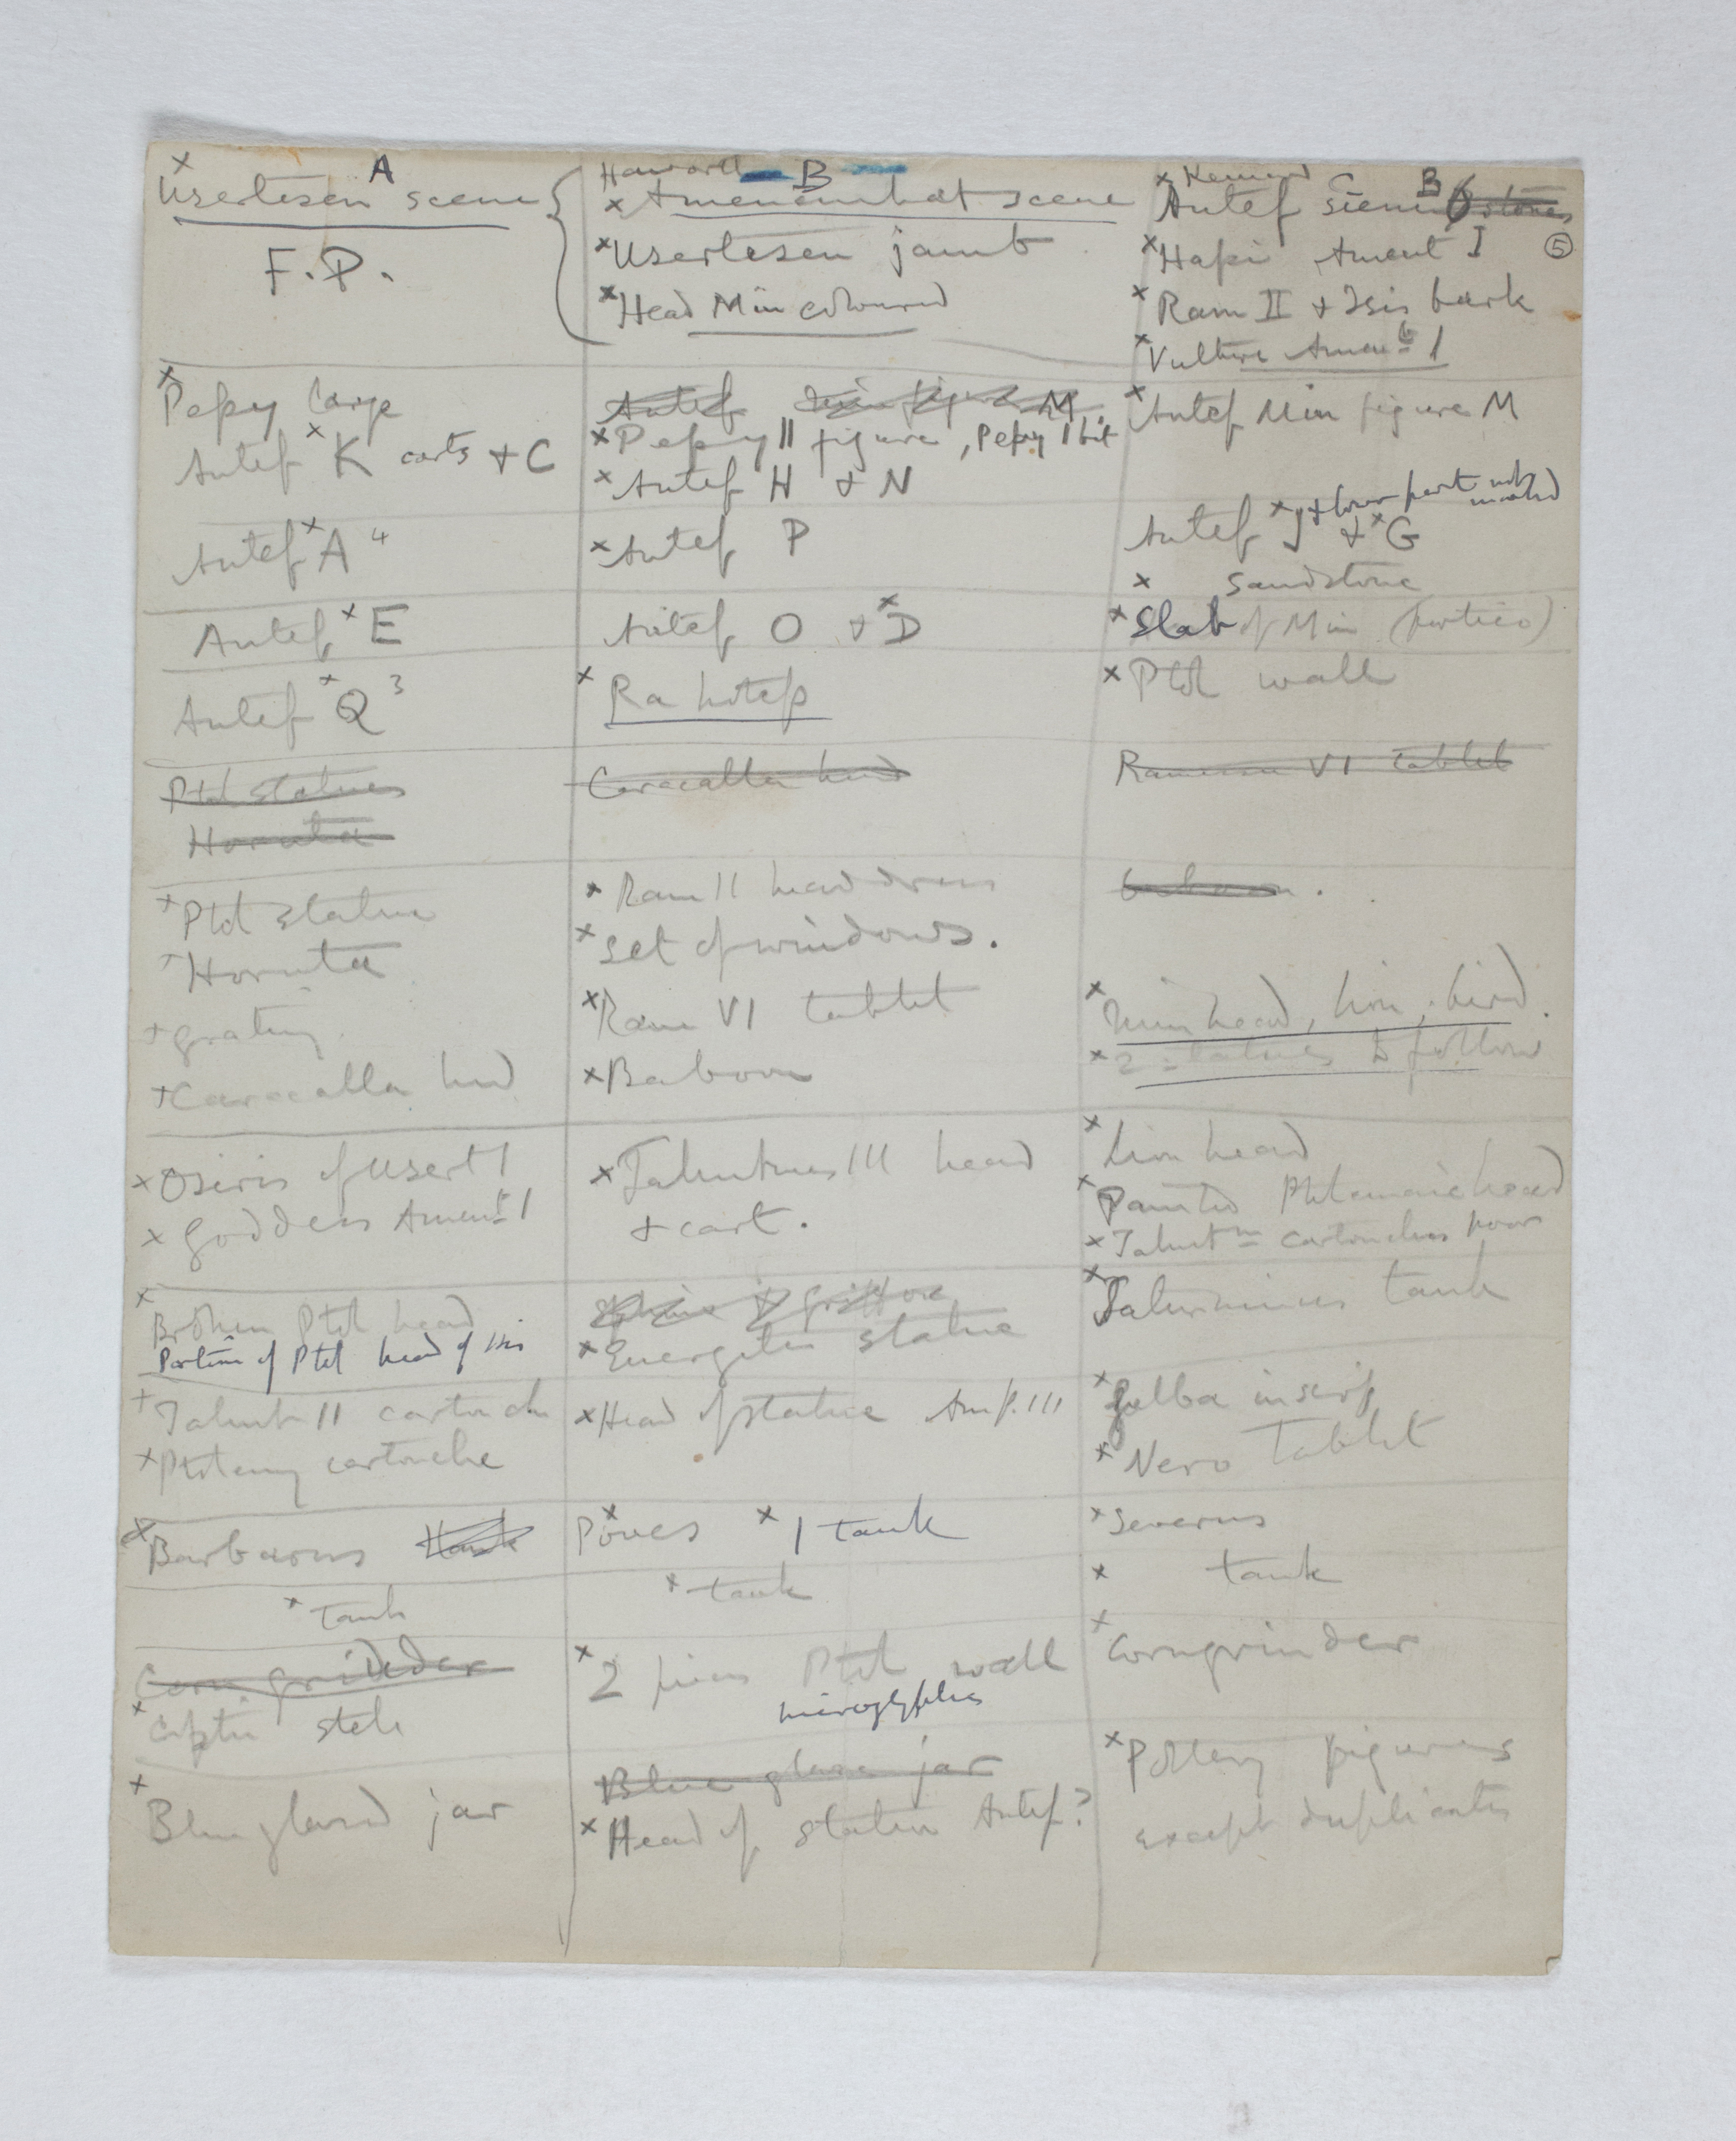 x A
Usertesen scene
F.P.
Haworth B
x Amenemhat scene
x Usertesen jamb
x Head Min coloured
x Kennard C
Antef scene B 6 stones
x Hapi Ament I 5
x Ram II + Isis bark
x Vulture Amenht 1
x Pepy large
Antef x K carts + C
Antef Min figure M
x Pepy II figure, Pepy I bit
x Antef H + N
x Antef Min figure M
Antef x A 4
x Antef P
Antef x J + lower part not
marked
+ x G
x sandstone
Antef x E
Antef O + x D
x Slab of Min (portico)
Antef x Q 3
x Ra hotep
x Ptol wall
Ptol statues
Hornuta
Caracalla head
Ramessu VI tablet
+ Ptol statue
+ Hornuta
+ grating
+ Caracalla head
x Ram II head dress
x set of windows.
x Ram VI tablet
x Baboon
baboon .
x Min head, lion, bird.
x 2 statues to follow
x Osiris of Usert 1
x Goddess Amenht 1
x Tahutmes III head
+ cart.
x Lion head
x Painted Ptolemaic head
x Tahutms cartouches poor
x Broken Ptol head
Portion of Ptol head of Isis
x Euergetes statue
x tank
+ Tahut II cartouche
x Ptolemy cartouche
x Head of statue Amf. III
x Galba inscrip
x Nero Tablet
x Barbarus tank
Poves x 1 tank
x Severus
x tank
x tank
x tank
Corn grinder
x Coptic stele
x 2 pieces Ptol wall
hieroglyphics
x Corn grinder
x Blue glazed jar
Blue glaze jar
x Head of statue Antef?
x Pottery figures
except duplicates